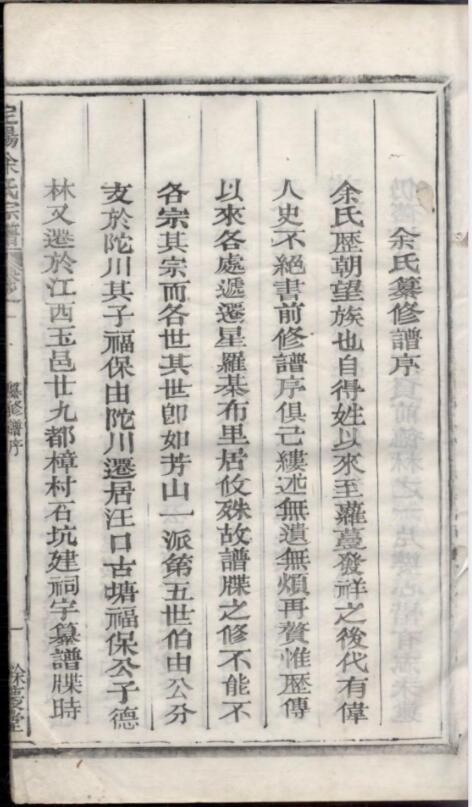 余氏纂修譜序
余氏歷朝望族也自得姓以來至蘿蔓發祥之後代有偉
人史不絕書前修譜序俱已縷述無遺無煩再贅惟歷傳
以來各處遞遷星羅棊布里居攸殊故譜牒之修不能不
各宗其宗而各世其世卽如芳山一派第五世伯由公分
支於陀川其子福保由陀川遷居汪口古塘福保公子德
林又遷於江西玉邑廿九都樟村石坑建祠宇纂譜牒時
定陽余氏宗譜
纂修譜序
一
餘慶堂